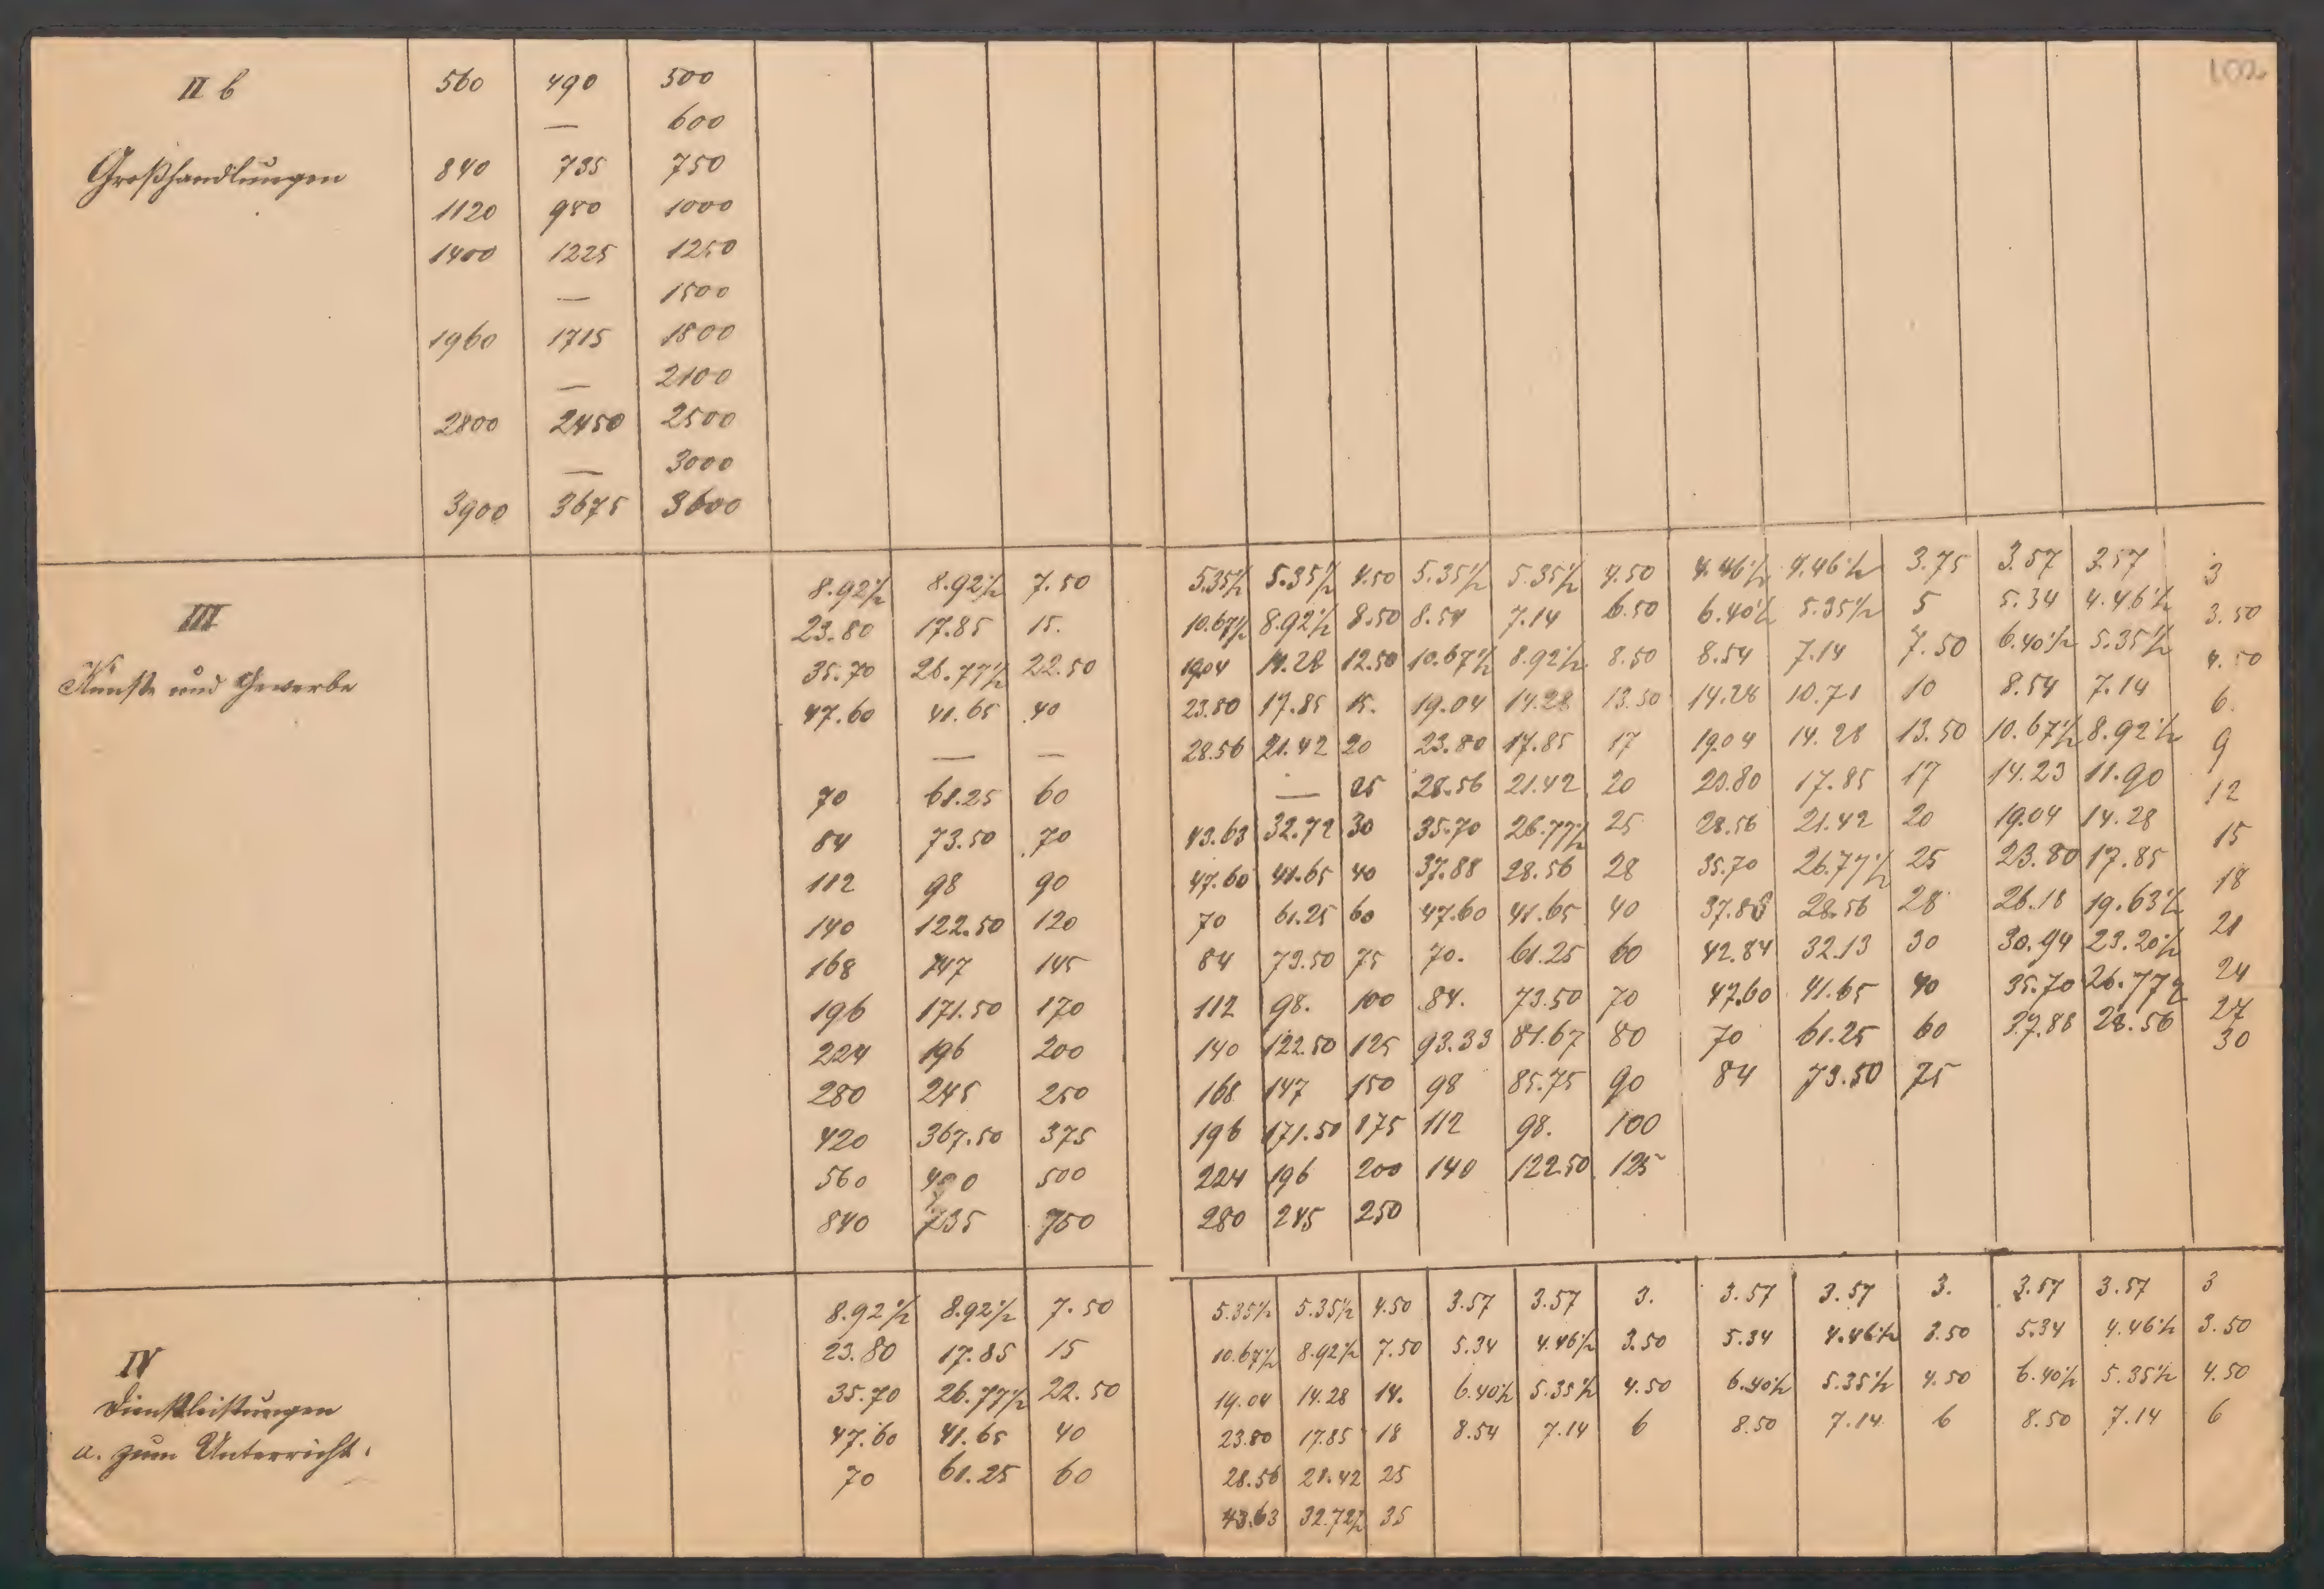 102
II b 560 490 500
— 600
Großhandlungen 840 735 750
1120 980 1000
1400 1225 1250
— 1500
1960 1715 1800
— 2100
2800 2450 2500
— 3000
3900 3675 3600
8.92½ 8.92½ 7.50 5.35½ 5.35½ 4.50 5.35½ 5.35½ 4.50 4.46½ 4.46½ 3.75 3.57 3.57 3
III 23.80 17.85 15. 10.67½ 8.92½ 8.50 8.54 7.14 6.50 6.40½ 5.35½ 5 5.34 4.46½ 3.50
Künste und Gewerbe 35.70 26.77½ 22.50 19.04 14.28 12.50 10.67½ 8.92½ 8.50 8.54 7.14 7.50 6.40½ 5.35½ 4.50
47.60 41.65 40 23.80 17.85 15. 19.04 14.28 13.50 14.28 10.71 10 8.54 7.14 6.
— — 28.56 21.42 20 23.80 17.85 17 19.04 14.28 13.50 10.67½ 8.92½ 9
70 61.25 60 — 25 28.56 21.42 20 23.80 17.85 17 14.23 11.90 12
84 73.50 70 43.63 32.72 30 35.70 26.77½ 25 28.56 21.42 20 19.04 14.28 15
112 98 90 47.60 41.65 40 37.88 28.56 28 35.70 26.77½ 25 23.80 17.85 18
140 122.50 120 70 61.25 60 47.60 41.65 40 37.88 28.56 28 26.18 19.63½ 21
168 147 145 84 73.50 75 70. 61.25 60 42.84 32.13 30 30.94 23.20½ 24
196 171.50 170 112 98. 100 84. 73.50 70 47.60 41.65 40 35.70 26.77½ 27
224 196 200 140 122.50 125 93.33 81.67 80 70 61.25 60 37.88 28.56 30
280 245 250 168 147 150 98 85.75 90 84 73.50 75
420 367.50 375 196 171.50 175 112 98. 100
560 490 500 224 196 200 140 122.50 125
840 735 750 280 245 250
8.92½ 8.92½ 7.50 5.35½ 5.35½ 4.50 3.57 3.57 3. 3.57 3.57 3. 3.57 3.57 3
IV 23.80 17.85 15 10.67½ 8.92½ 7.50 5.34 4.46½ 3.50 5.34 4.46½ 3.50 5.34 4.46½ 3.50
Dienstleistungen 35.70 26.77½ 22.50 19.04 14.28 14. 6.40½ 5.35½ 4.50 6.40½ 5.35½ 4.50 6.40½ 5.35½ 4.50
a. zum Unterricht. 47.60 41.65 40 23.80 17.85 18 8.54 7.14 6 8.50 7.14 6 8.50 7.14 6
70 61.25 60 28.56 21.42 25
43.63 32.72½ 35